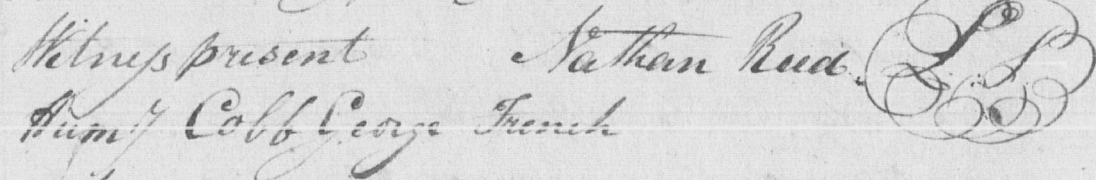 Witness present Nathan Reed LS
Humy Cobb George French